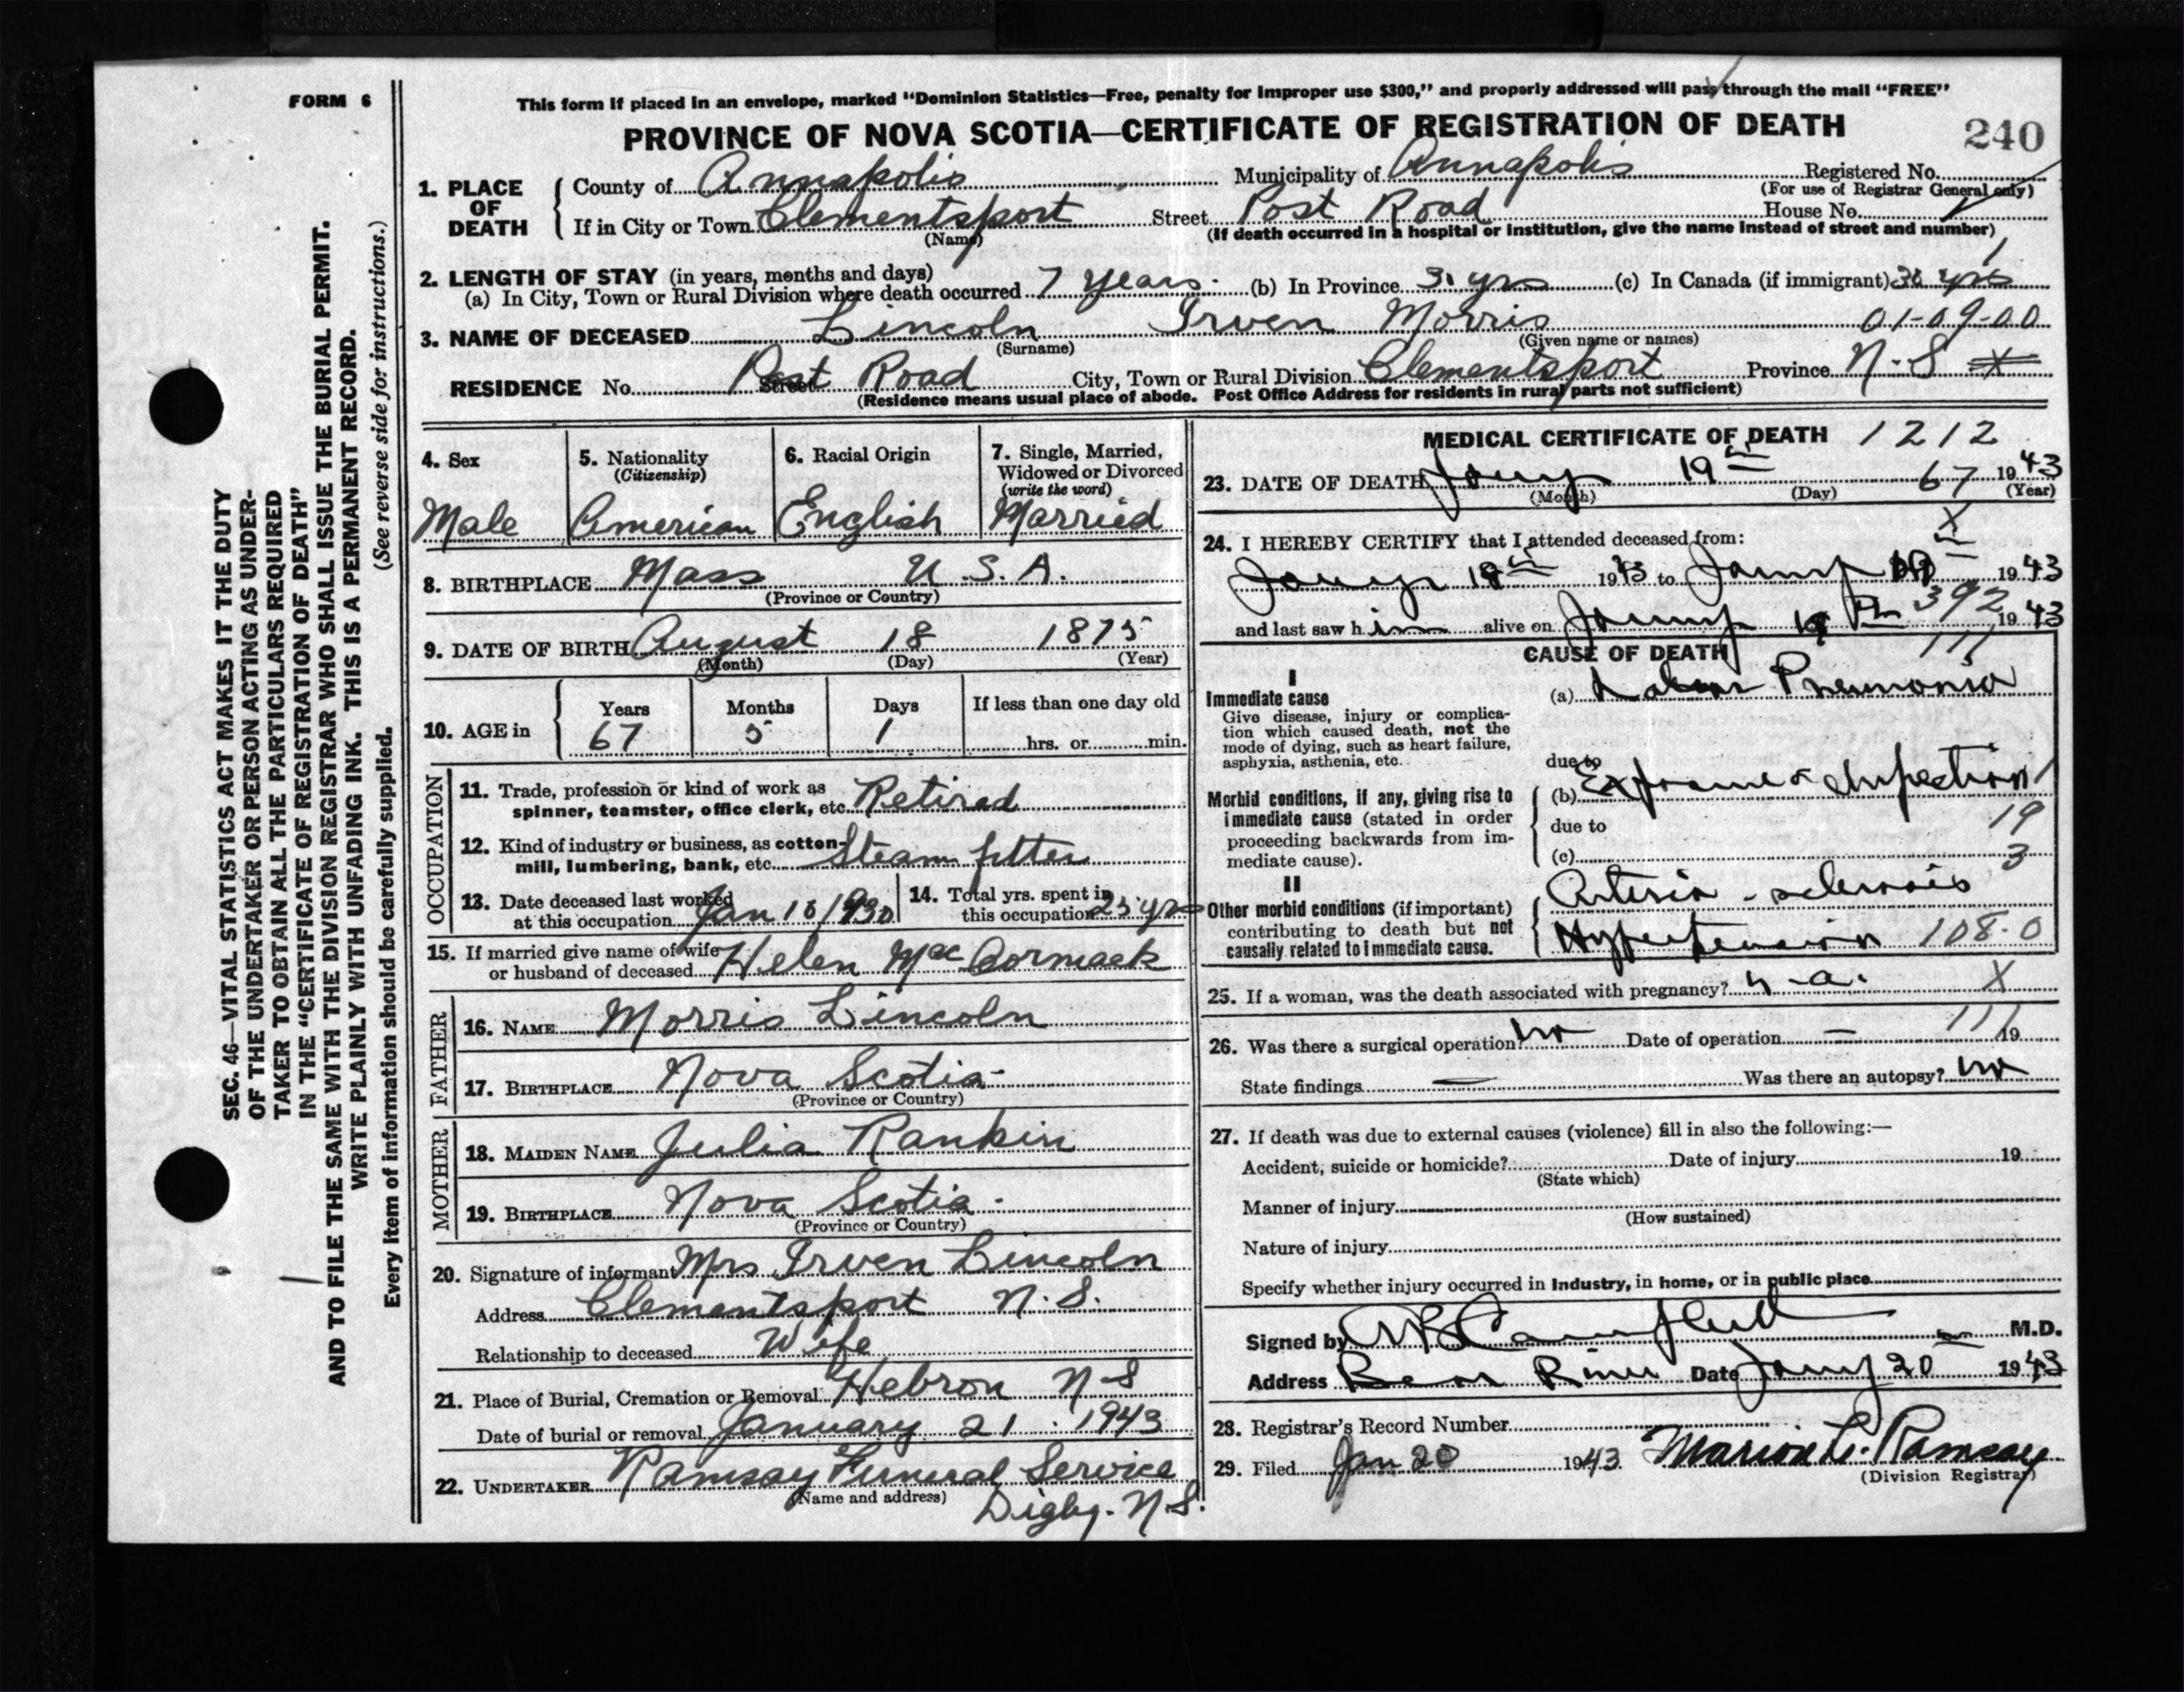 FORM 6
This form if placed in an envelope, marked "Dominion Statistics—Free, penalty for improper use $300," and properly addressed will pass through the mail "FREE"
PROVINCE OF NOVA SCOTIA—CERTIFICATE OF REGISTRATION OF DEATH
240
1. PLACE OF DEATH
County of Annapolis Municipality of Annapolis Registered No.
(For use of Registrar General only)
If in City or Town Clementsport Street Post Road House No.
(Name) (If death occurred in a hospital or institution, give the name instead of street and number)
1
2. LENGTH OF STAY (in years, months and days)
(a) In City, Town or Rural Division where death occurred 7 years. (b) In Province 31 yrs (c) In Canada (if immigrant) yrs
3. NAME OF DECEASED Lincoln Irven Morris 01-09-00
(Surname) (Given name or names)
RESIDENCE No. Street Post Road City, Town or Rural Division Clementsport Province N.S
(Residence means usual place of abode. Post Office Address for residents in rural parts not sufficient)
4. Sex
Male
5. Nationality
(Citizenship)
American
6. Racial Origin
English
7. Single, Married,
Widowed or Divorced
(write the word)
Married
8. BIRTHPLACE Mass U.S.A.
(Province or Country)
9. DATE OF BIRTH August 18 1875
(Month) (Day) (Year)
10. AGE in
Years Months Days If less than one day old
67 5 1 hrs. or min.
OCCUPATION
11. Trade, profession or kind of work as
spinner, teamster, office clerk, etc. Retired
12. Kind of industry or business, as cotton-
mill, lumbering, bank, etc. Steam fitter
13. Date deceased last worked
at this occupation Jan 10/1930
14. Total yrs. spent in
this occupation 25 yrs
15. If married give name of wife
or husband of deceased Helen MacCormack
FATHER
16. NAME Morris Lincoln
17. BIRTHPLACE Nova Scotia
(Province or Country)
MOTHER
18. MAIDEN NAME Julia Rankin
19. BIRTHPLACE Nova Scotia.
(Province or Country)
20. Signature of informant Mrs Irven Lincoln
Address Clementsport N.S.
Relationship to deceased Wife
21. Place of Burial, Cremation or Removal Hebron N S
Date of burial or removal January 21. 1943
22. UNDERTAKER Ramsay Funeral Service
(Name and address) Digby. N.S.
MEDICAL CERTIFICATE OF DEATH 1212
23. DATE OF DEATH Jany 19th 67 1943
(Month) (Day) (Year)
X
24. I HEREBY CERTIFY that I attended deceased from:
Jany 18th 1943 to Jany 19th 1943
and last saw him alive on Jany 19th 392 1943
CAUSE OF DEATH 111
I
Immediate cause
Give disease, injury or complica-
tion which caused death, not the
mode of dying, such as heart failure,
asphyxia, asthenia, etc.
(a) Lobar Pneumonia
due to
Morbid conditions, if any, giving rise to
immediate cause (stated in order
proceeding backwards from im-
mediate cause).
(b) Exposure & Infection 1
due to 19
(c) 3
II
Other morbid conditions (if important)
contributing to death but not
causally related to immediate cause.
Arterio-sclerosis
Hypertension 108-0
25. If a woman, was the death associated with pregnancy? n-a. X
26. Was there a surgical operation? no Date of operation — 111 19
State findings — Was there an autopsy? no
27. If death was due to external causes (violence) fill in also the following:—
Accident, suicide or homicide? Date of injury 19
(State which)
Manner of injury
(How sustained)
Nature of injury
Specify whether injury occurred in industry, in home, or in public place
Signed by Campbell M.D.
Address Bear River Date Jany 20 1943
28. Registrar's Record Number
29. Filed Jan 20 1943 Marion L. Ramsay
(Division Registrar)
SEC. 46—VITAL STATISTICS ACT MAKES IT THE DUTY
OF THE UNDERTAKER OR PERSON ACTING AS UNDER-
TAKER TO OBTAIN ALL THE PARTICULARS REQUIRED
IN THE "CERTIFICATE OF REGISTRATION OF DEATH"
AND TO FILE THE SAME WITH THE DIVISION REGISTRAR WHO SHALL ISSUE THE BURIAL PERMIT.
WRITE PLAINLY WITH UNFADING INK. THIS IS A PERMANENT RECORD.
(See reverse side for instructions.)
Every item of information should be carefully supplied.